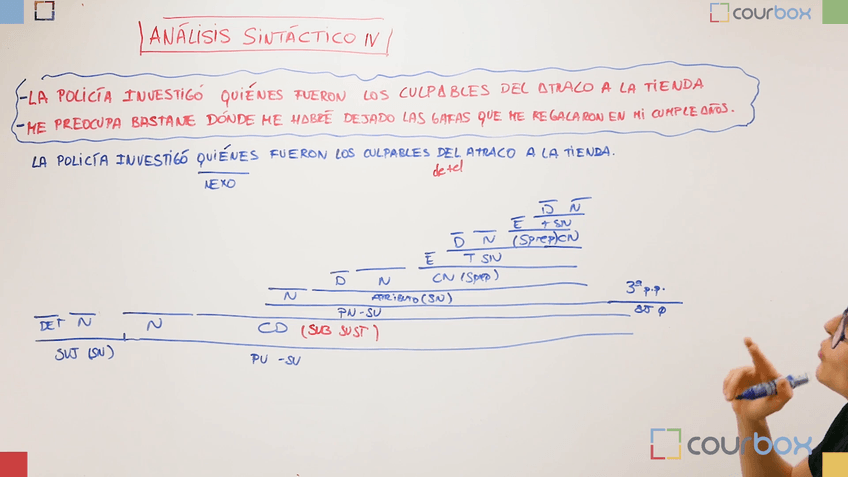 courbox
ANÁLISIS SINTÁCTICO IV
-LA POLICÍA INVESTIGÓ QUIÉNES FUERON LOS CULPABLES DEL ATRACO A LA TIENDA
-ME PREOCUPA BASTANE DÓNDE ME HABRÉ DEJADO LAS GAFAS QUE ME REGALARON EN MI CUMPLEAÑOS.
LA POLICÍA INVESTIGÓ QUIÉNES FUERON LOS CULPABLES DEL ATRACO A LA TIENDA.
de+el
NEXO
D N
E T SN
D N (SPREP)CN
E T SN
D N CN (SPREP)
N ATRIBUTO (SN) 3ª p.p.
PN-SV
DET N N CD (SUB SUST)
SUJ (SN) PV -SV
courbox